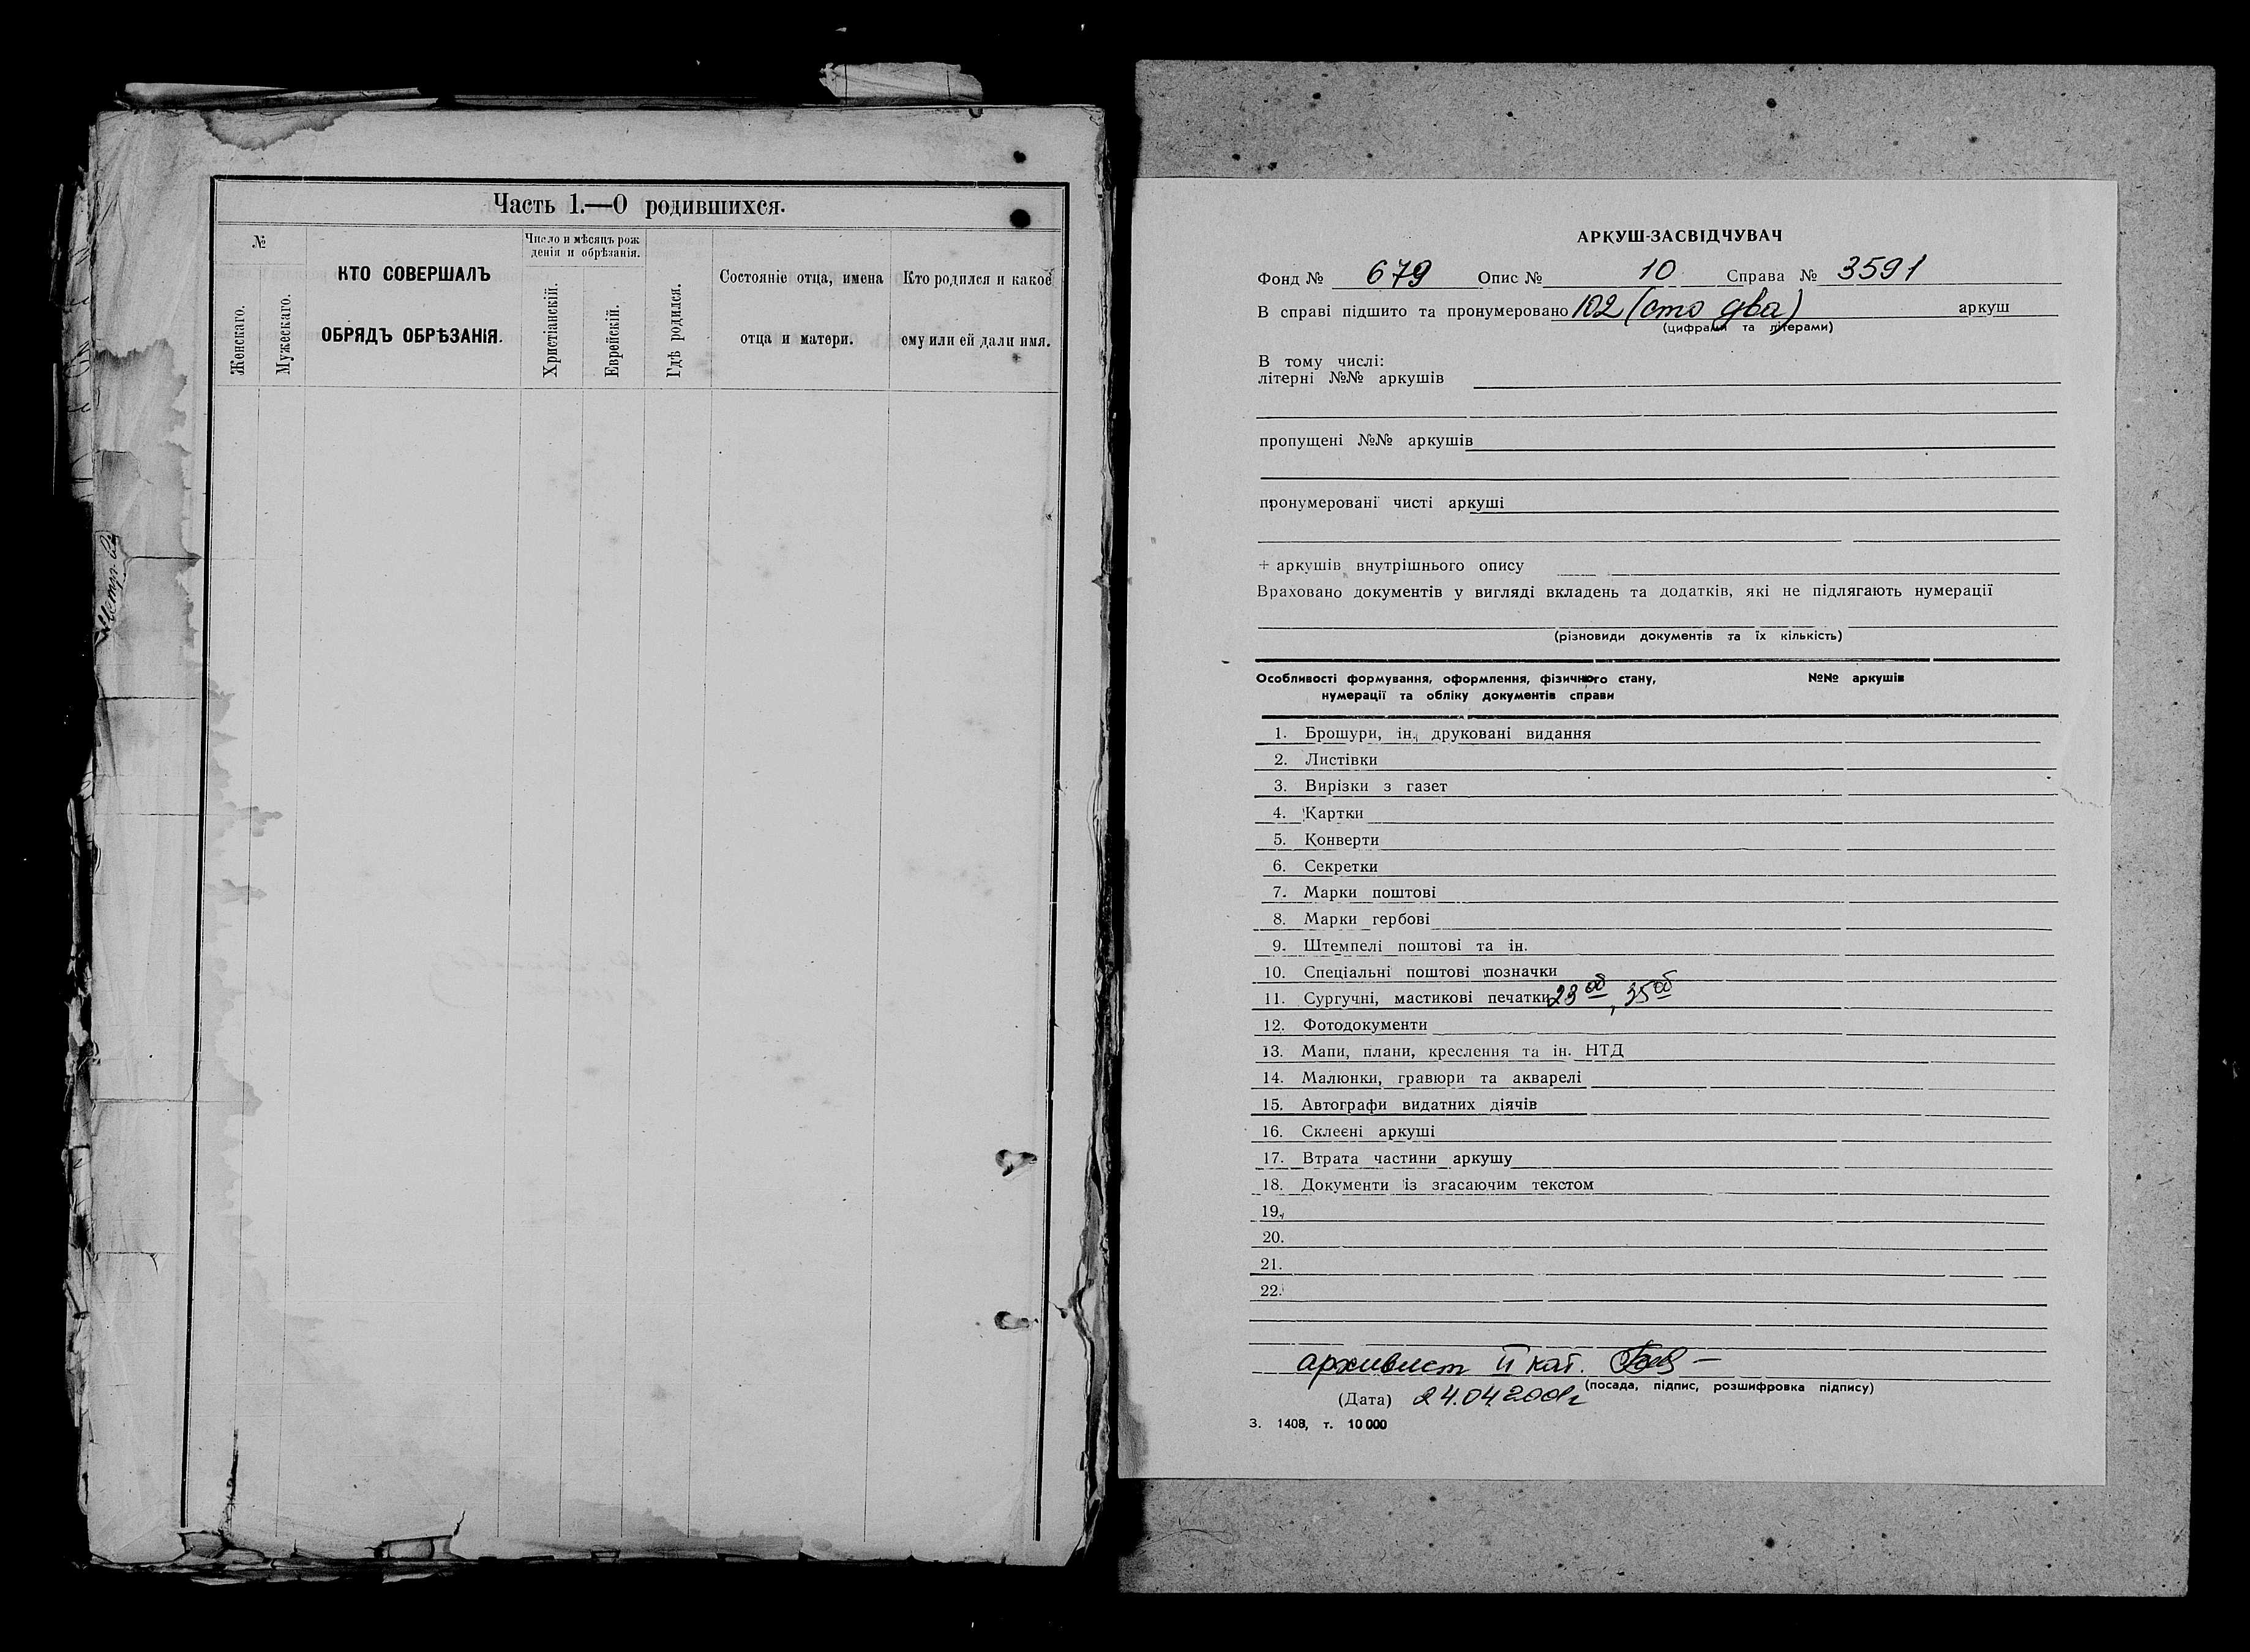 Часть 1.—О родившихся.
№
Женскаго.
Мужескаго.
КТО СОВЕРШАЛЪ
ОБРЯДЪ ОБРѢЗАНІЯ.
Число и мѣсяцъ рож
денія и обрѣзанія.
Христіанскій.
Еврейскій.
Гдѣ родился.
Состояніе отца, имена
отца и матери.
Кто родился и какое
ему или ей дали имя.
АРКУШ-ЗАСВІДЧУВАЧ
Фонд № 679 Опис № 10 Справа № 3591
В справі підшито та пронумеровано 102 (сто два) аркуш
(цифрами та літерами)
В тому числі:
літерні №№ аркушів
пропущені №№ аркушів
пронумеровані чисті аркуші
+ аркушів внутрішнього опису
Враховано документів у вигляді вкладень та додатків, які не підлягають нумерації
(різновиди документів та їх кількість)
Особливості формування, оформлення, фізичного стану, №№ аркушів
нумерації та обліку документів справи
1. Брошури, ін. друковані видання
2. Листівки
3. Вирізки з газет
4. Картки
5. Конверти
6. Секретки
7. Марки поштові
8. Марки гербові
9. Штемпелі поштові та ін.
10. Спеціальні поштові позначки
11. Сургучні, мастикові печатки 23 об, 35 об
12. Фотодокументи
13. Мапи, плани, креслення та ін. НТД
14. Малюнки, гравюри та акварелі
15. Автографи видатних діячів
16. Склеєні аркуші
17. Втрата частини аркушу
18. Документи із згасаючим текстом
19.
20.
21.
22.
архивист II кат.
(посада, підпис, розшифровка підпису)
(Дата) 24.04.2001г
З. 1408, т. 10 000